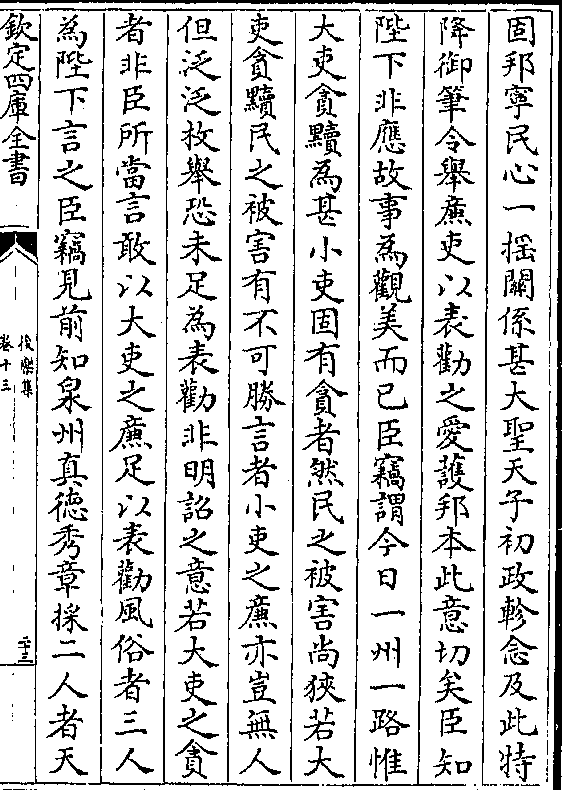 固邦寧民心一揺關係甚大聖天子初政軫念及此特
降御筆令舉廉吏以表勸之愛護邦本此意切矣臣知
陛下非應故事為觀美而已臣竊謂今日一州一路惟
大吏貪黷為甚小吏固有貪者然民之被害尚狹若大
吏貪黷民之被害有不可勝言者小吏之廉亦豈無人
但泛泛枚舉恐未足為表勸非明詔之意若大吏之貪
者非臣所當言敢以大吏之廉足以表勸風俗者三人
為陛下言之臣竊見前知泉州真徳秀章採二人者天
欽定四庫全書
後樂集
卷十三
二十三